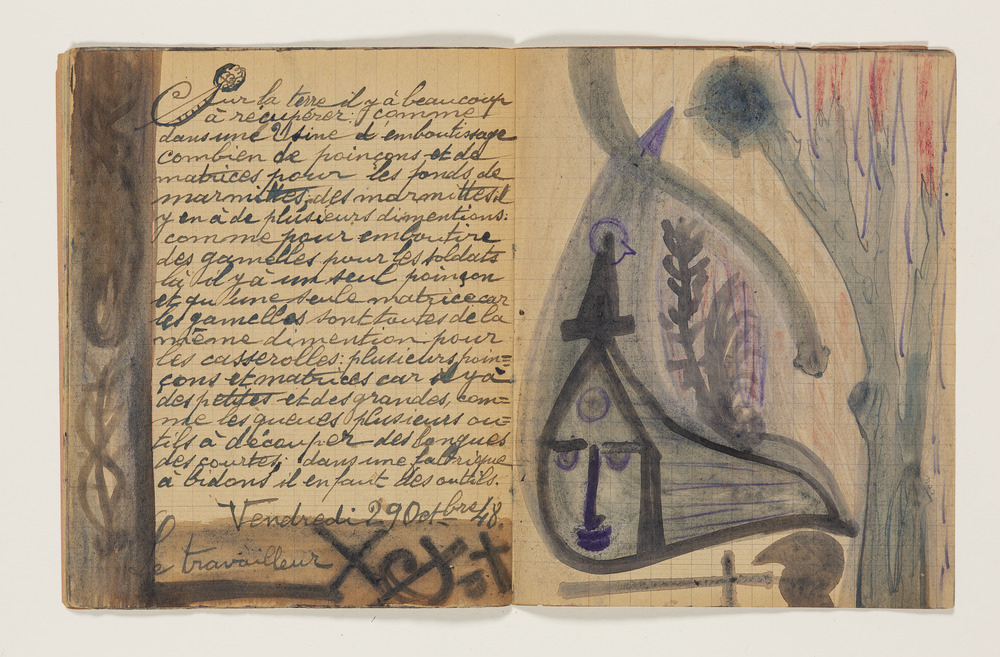 Sur la terre il y à beaucoup
à récupérer: comme
dans une Usine d'emboutissage
combien de poinçons et de
matrices pour les fonds de
marmittes, des marmittes il
y en à de plusieurs dimentions:
comme pour emboutire
des gamelles pour les soldats
là il y à un seul poinçon
et qu'une seule matrice car
les gamelles sont toutes de la
même dimention pour
les casserolles: plusieurs poin=
çons et matrices car il y à
des petites et des grandes, com=
me les queues plusieurs ou=
tils à découper des longues
des courtes; dans une fabrique
à bidons il en faut des outils.
Vendredi 29 Octbre 48
Le travailleur